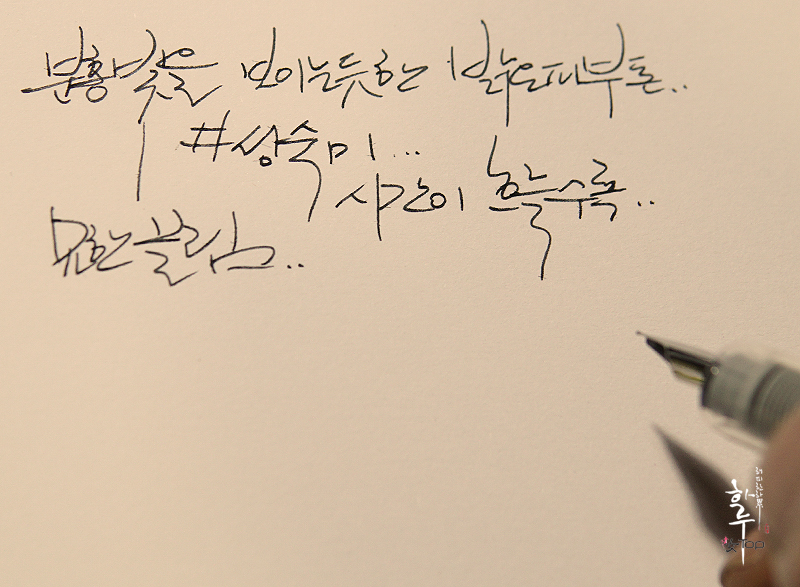 분홍빛을 보이는듯한 밝은피부톤..
#상숙미...
시간이 흐를수록..
묘한끌림..
하루